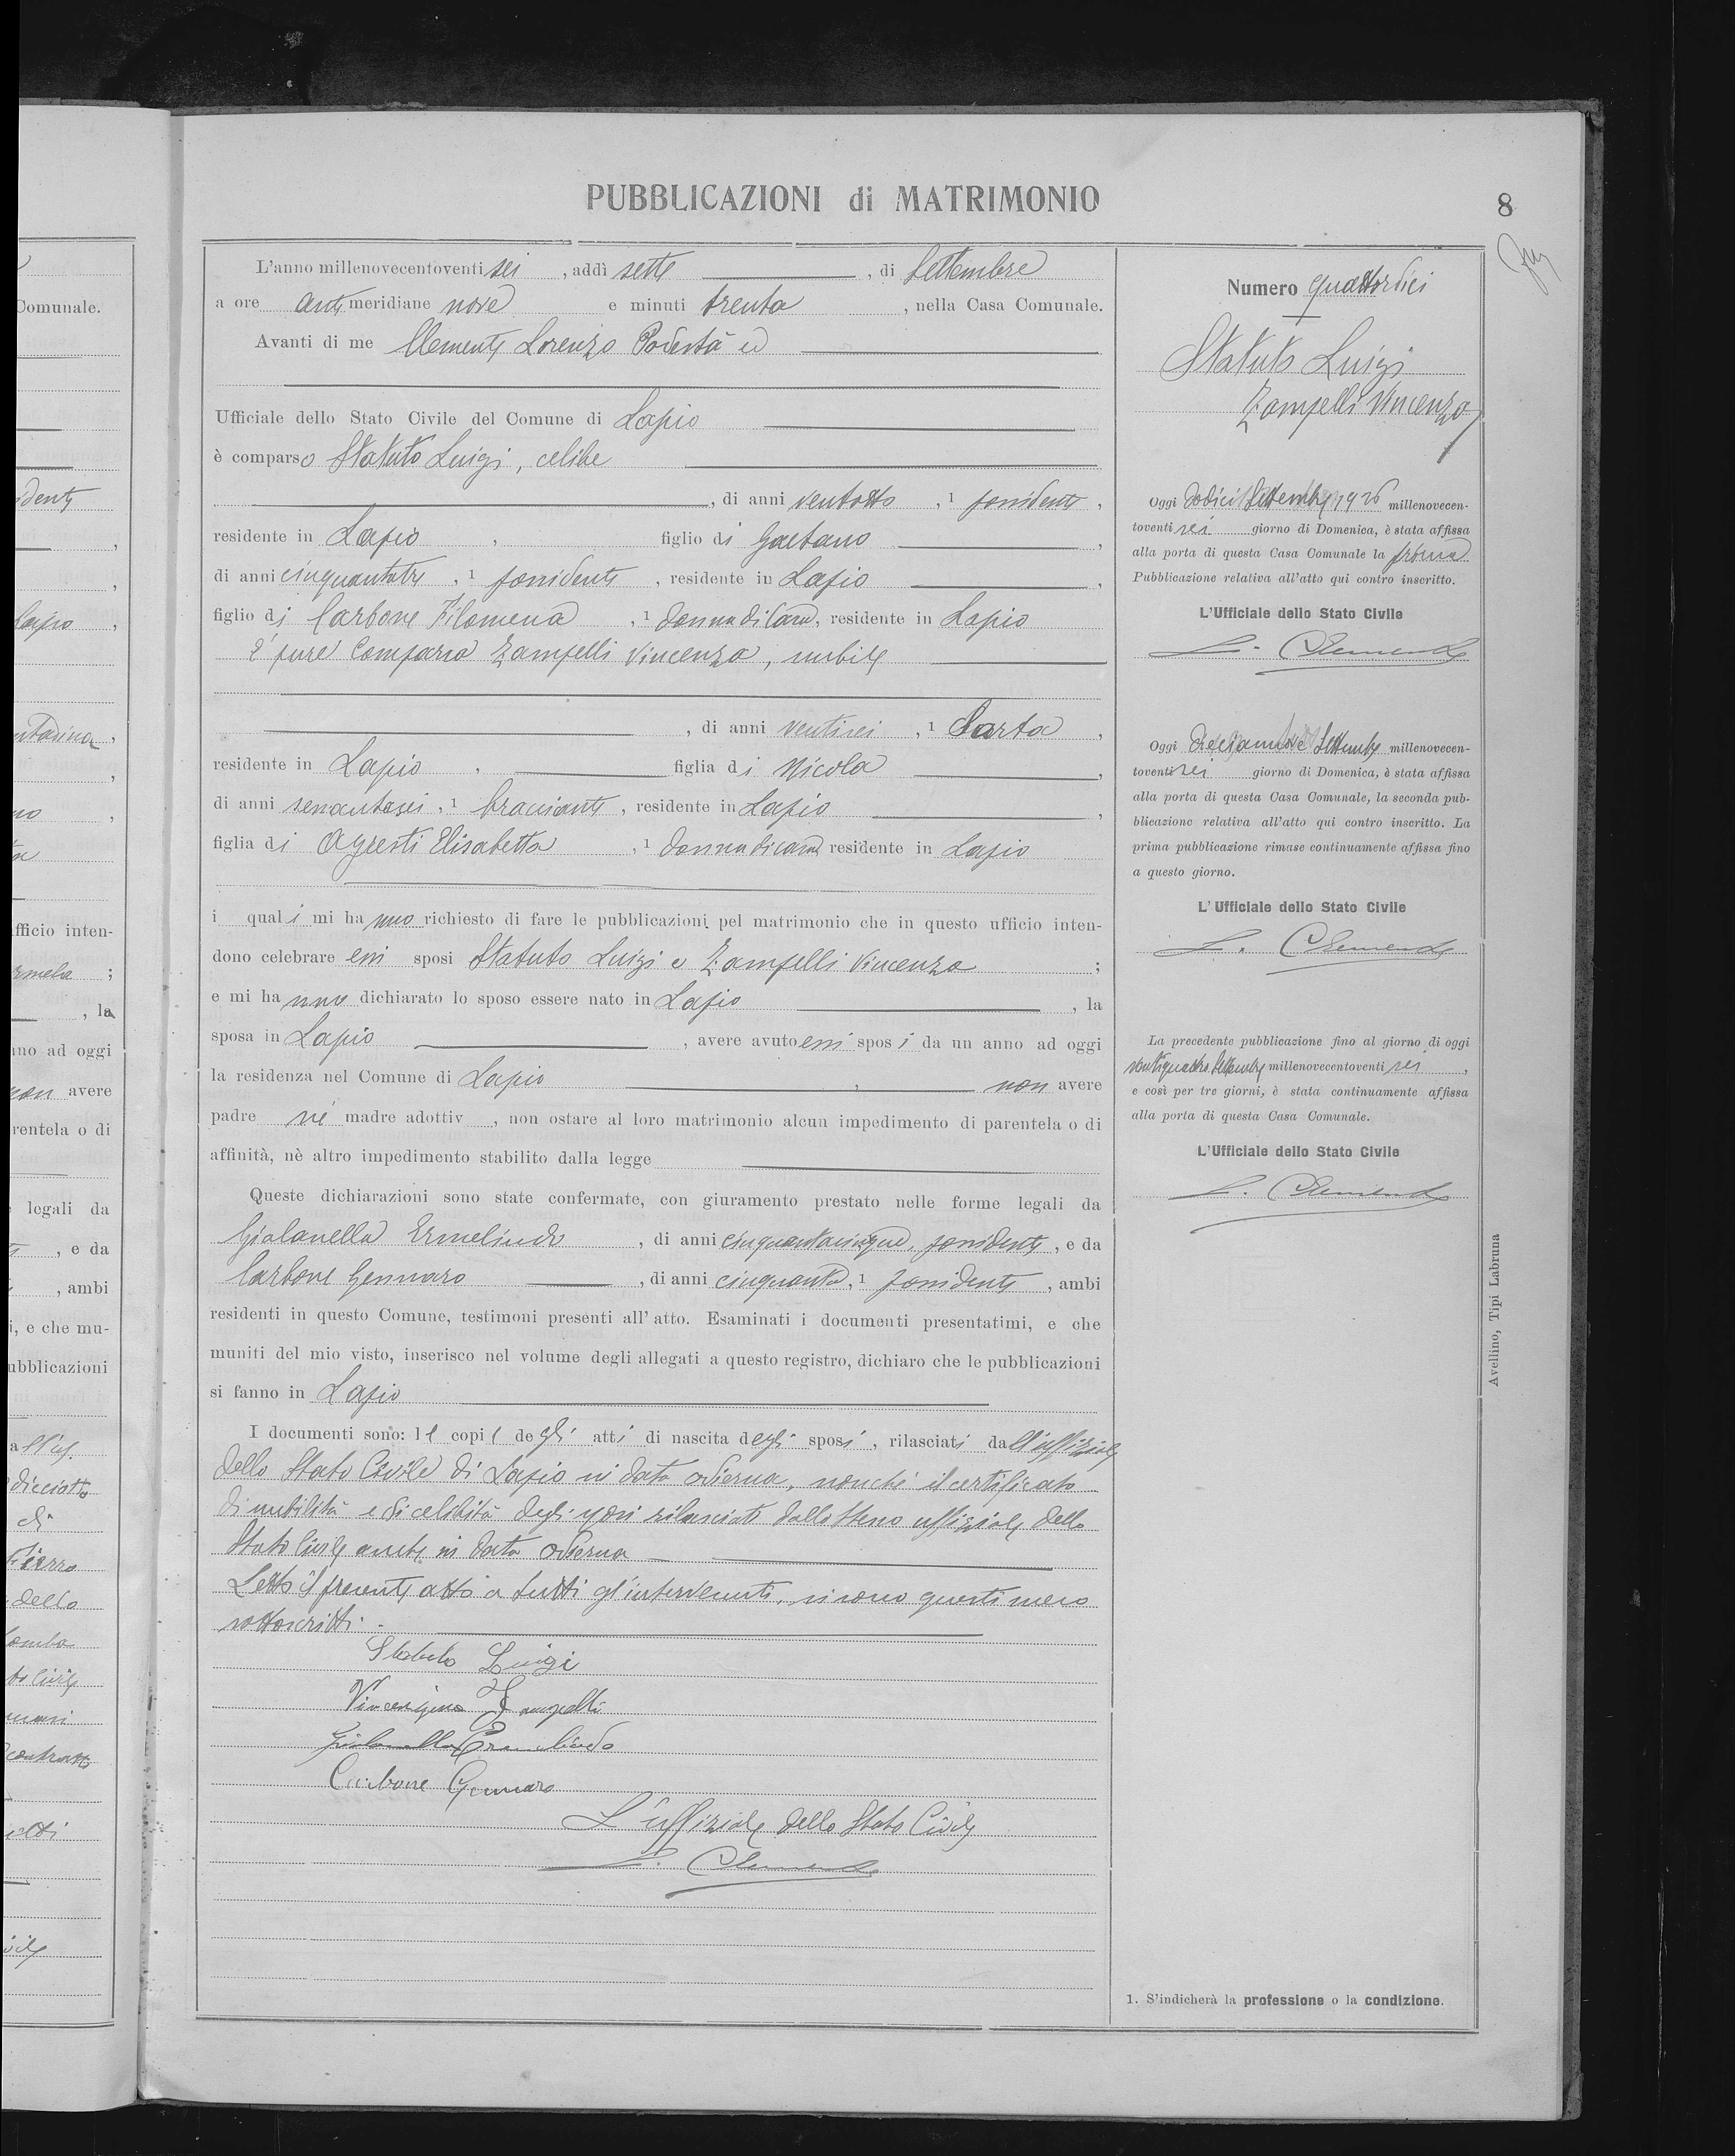 PUBBLICAZIONI di MATRIMONIO
8
L'anno millenovecentoventi sei, addì sette, di Settembre
a ore anti meridiane nove e minuti trenta, nella Casa Comunale.
Avanti di me Clemente Lorenzo Podestà ed
Ufficiale dello Stato Civile del Comune di Lapio
è comparso Statuto Luigi, celibe
, di anni ventotto, 1 possidente,
residente in Lapio, figlio di Gaetano,
di anni cinquantatre, 1 possidente, residente in Lapio,
figlio di Carbone Filomena, 1 donna di casa, residente in Lapio
È pure comparsa Zampelli Vincenza, nubile
, di anni ventisei, 1 Sarta,
residente in Lapio, figlia di Nicola,
di anni sessantasei, 1 bracciante, residente in Lapio,
figlia di Agresti Elisabetta, 1 donna di casa residente in Lapio
i quali mi hanno richiesto di fare le pubblicazioni pel matrimonio che in questo ufficio inten-
dono celebrare essi sposi Statuto Luigi e Zampelli Vincenza;
e mi hanno dichiarato lo sposo essere nato in Lapio, la
sposa in Lapio, avere avuto essi sposi da un anno ad oggi
la residenza nel Comune di Lapio, non avere
padre nè madre adottiv, non ostare al loro matrimonio alcun impedimento di parentela o di
affinità, nè altro impedimento stabilito dalla legge
Queste dichiarazioni sono state confermate, con giuramento prestato nelle forme legali da
Giolanella Ermelindo, di anni cinquantacinque, possidente, e da
Carbone Gennaro, di anni cinquanta, 1 possidente, ambi
residenti in questo Comune, testimoni presenti all'atto. Esaminati i documenti presentatimi, e che
muniti del mio visto, inserisco nel volume degli allegati a questo registro, dichiaro che le pubblicazioni
si fanno in Lapio
I documenti sono: le copie degli atti di nascita degli sposi, rilasciati dall'uffiziale
dello Stato Civile di Lapio in data odierna, nonchè il certificato
di nubilità e di celibità degli sposi rilasciati dallo stesso uffiziale dello
Stato Civile anche in data odierna
Letto il presente atto a tutti gl'intervenuti, si sono questi meco
sottoscritti.
Statuto Luigi
Vincenzina Zampelli
Giolanella Ermelindo
Carbone Gennaro
L'uffiziale dello Stato Civile
L. Clemente
Numero quattordici
Statuto Luigi
Zampelli Vincenza
Oggi dodici Settembre 1926 millenovecen-
toventi sei giorno di Domenica, è stata affissa
alla porta di questa Casa Comunale la prima
Pubblicazione relativa all'atto qui contro inscritto.
L'Ufficiale dello Stato Civile
L. Clemente
Oggi diciannove Settembre millenovecen-
toventi sei giorno di Domenica, è stata affissa
alla porta di questa Casa Comunale, la seconda pub-
blicazione relativa all'atto qui contro inscritto. La
prima pubblicazione rimase continuamente affissa fino
a questo giorno.
L'Ufficiale dello Stato Civile
L. Clemente
La precedente pubblicazione fino al giorno di oggi
ventiquattro Settembre millenovecentoventi sei,
e così per tre giorni, è stata continuamente affissa
alla porta di questa Casa Comunale.
L'Ufficiale dello Stato Civile
L. Clemente
Avellino, Tipi Labruna
1. S'indicherà la professione o la condizione.